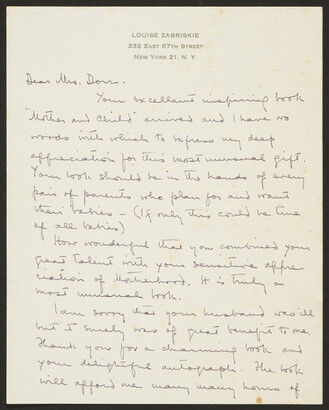 LOUISE ZABRISKIE
332 EAST 67TH STREET
NEW YORK 21, N. Y.
Dear Mrs. Dorr -
Your excellent inspiring book
"Mother and Child" arrived and I have no
words with which to express my deep
appreciation for this most unusual gift.
Your book should be in the hands of every
pair of parents who plan for and want
their babies - (If only this could be true
of all babies)
How wonderful that you combined your
great talent with your sensitive appre-
ciation of Motherhood. It is truly a
most unusual book.
I am sorry that your husband was ill
but it surely was of great benefit to me.
Thank you for a charming book and
your delightful autograph. The book
will afford me many many hours of